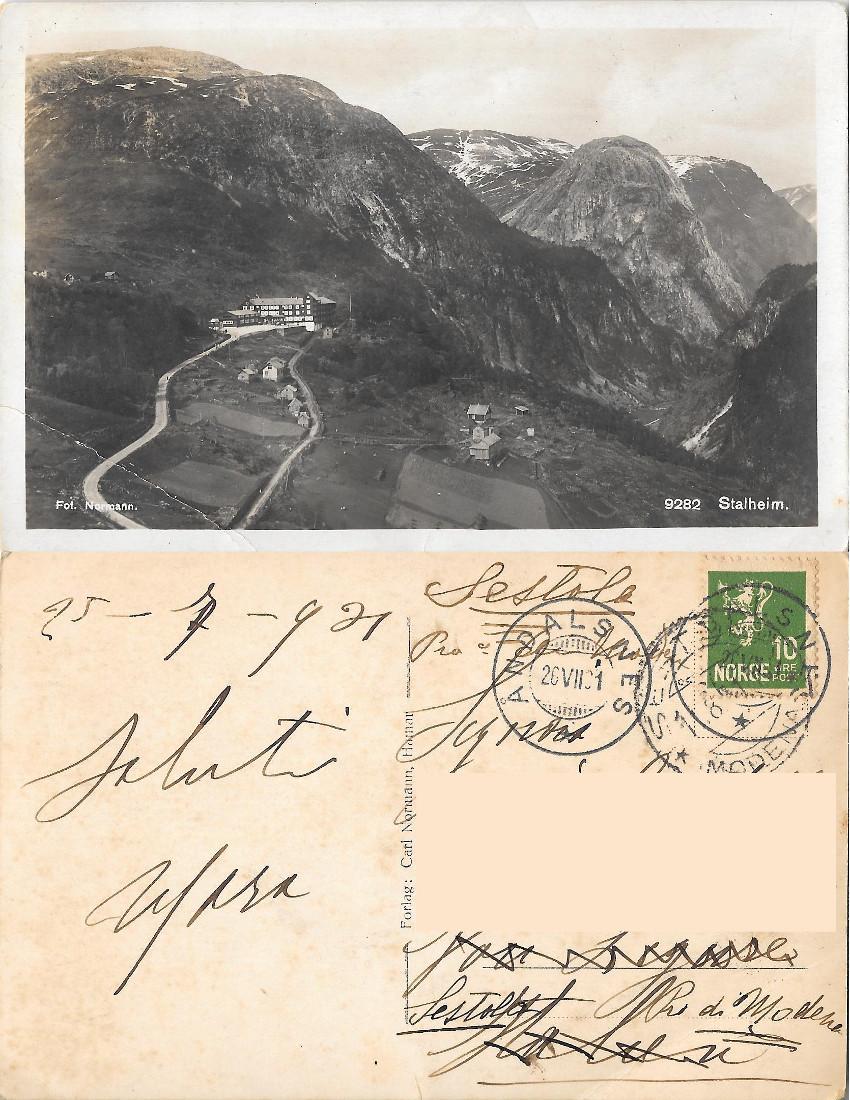 Fot. Normann.
9282 Stalheim.
25 - 7 - 931
Saluti
Mara
Forlag: Carl Normann, Hamar
Sestola
ÅNDALSNES
26 VII 31
NORGE 10 ØRE
POST
MODENA
Signora
Sestola Pro di Modena
Italia